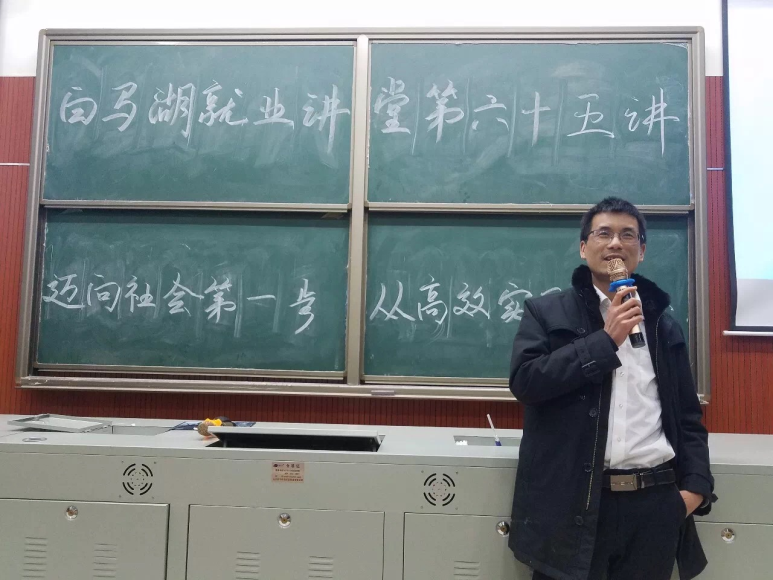 白马湖就业讲堂第六十五讲
迈向社会第一步
从高效实